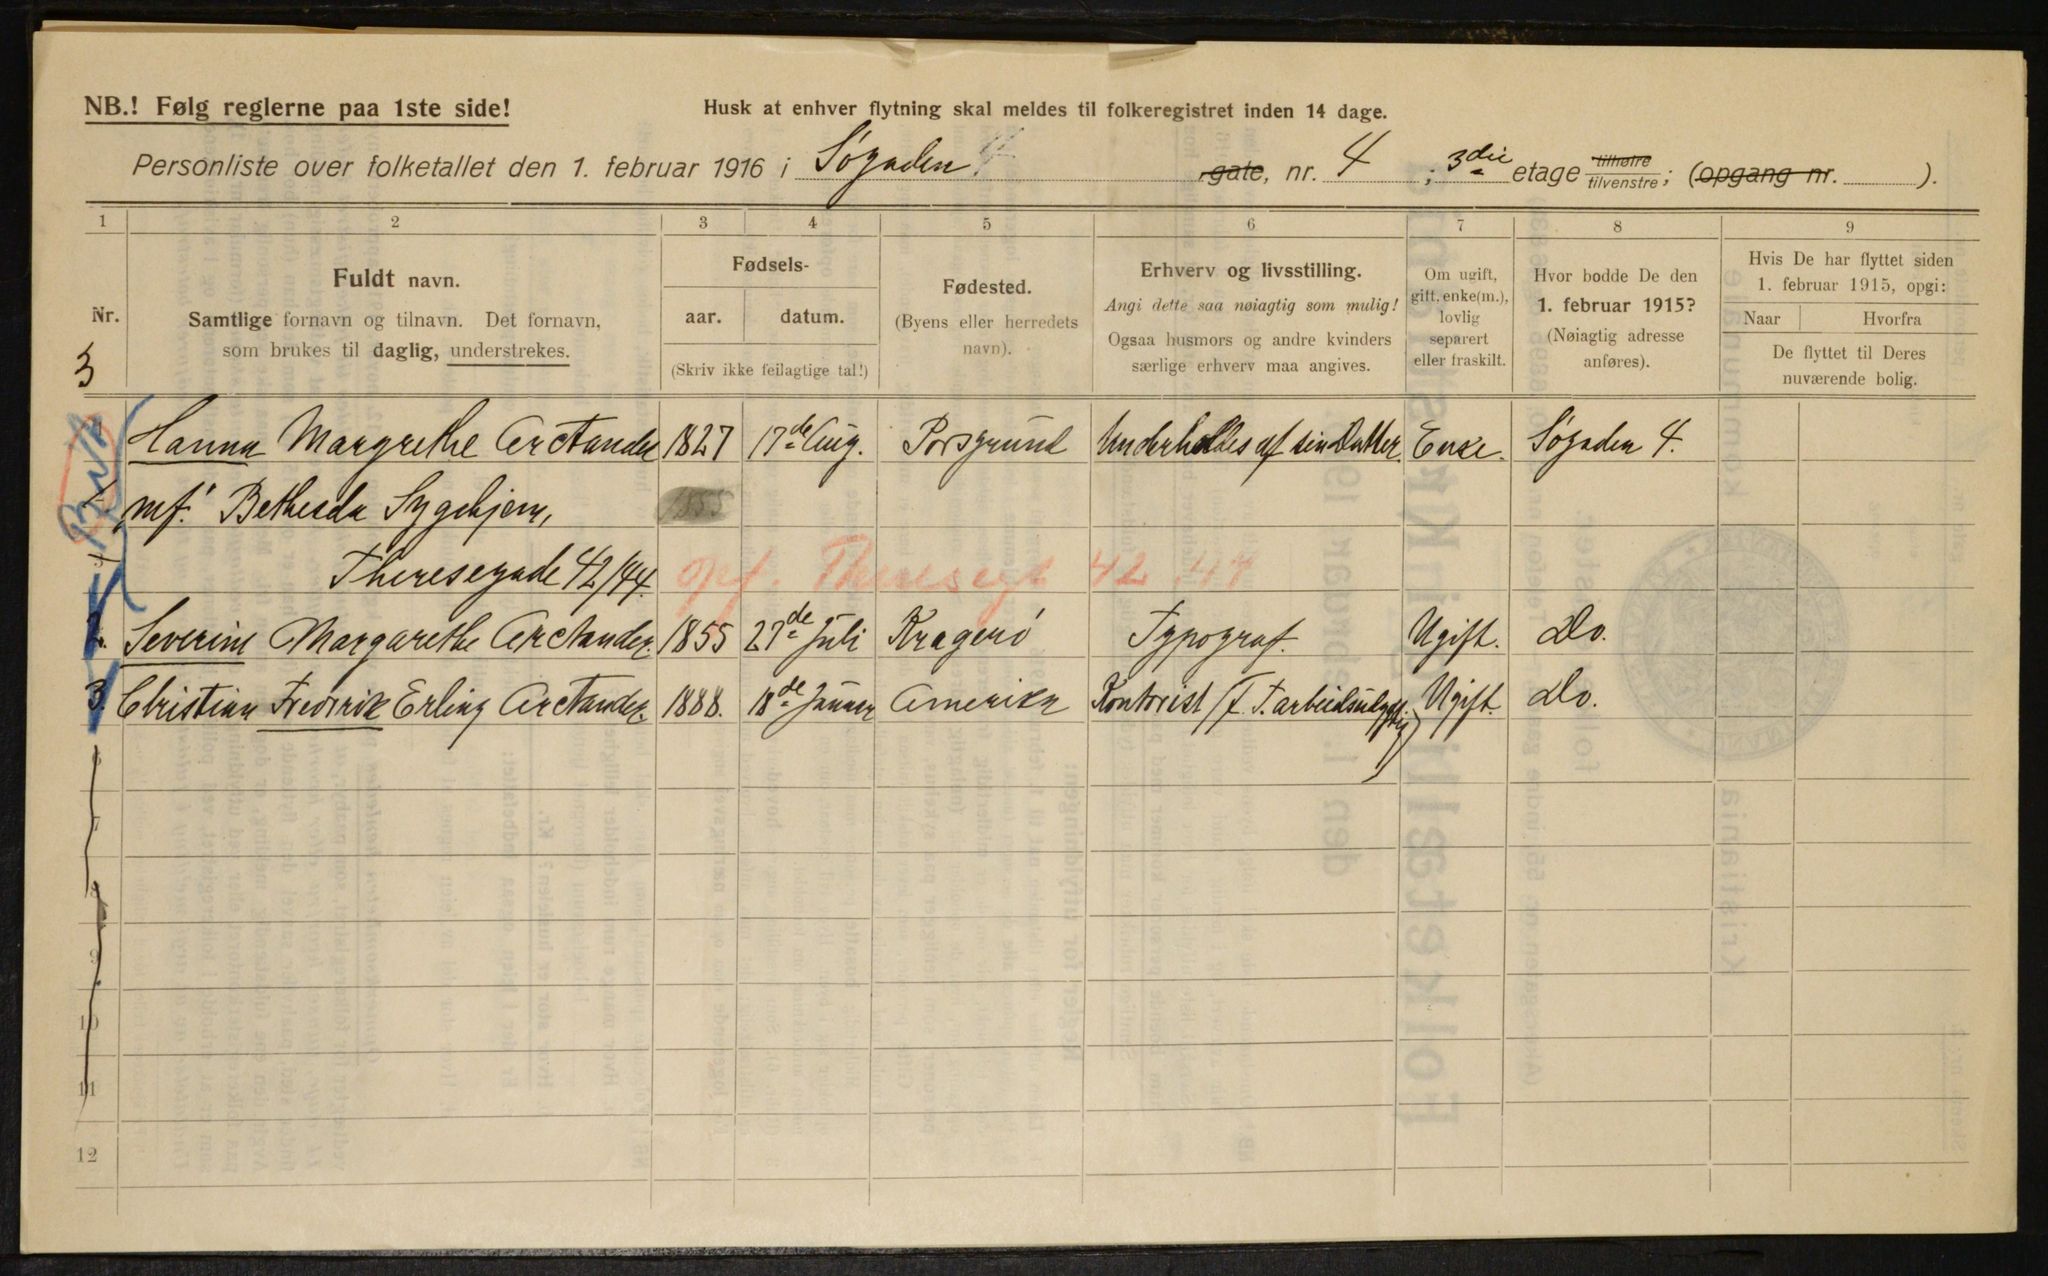 NB.! Følg reglerne paa 1ste side!
Husk at enhver flytning skal meldes til folkeregistret inden 14 dage.
Personliste over folketallet den 1. februar 1916 i Søgaden 4 gate, nr. 4 ; 3die etage tilhøire tilvenstre; (opgang nr. ).
1 2 3 4 5 6 7 8 9
Nr.
Fuldt navn.
Samtlige fornavn og tilnavn. Det fornavn,
som brukes til daglig, understrekes.
Fødsels-
aar. datum.
(Skriv ikke feilagtige tal!)
Fødested.
(Byens eller herredets
navn).
Erhverv og livsstilling.
Angi dette saa nøiagtig som mulig!
Ogsaa husmors og andre kvinders
særlige erhverv maa angives.
Om ugift,
gift, enke(m.),
lovlig
separert
eller fraskilt.
Hvor bodde De den
1. februar 1915?
(Nøiagtig adresse
anføres).
Hvis De har flyttet siden
1. februar 1915, opgi:
Naar Hvorfra
De flyttet til Deres
nuværende bolig.
3
Hanna Margrethe Arctander 1827 17de Aug. Porsgrund Underholdes af sin Datter. Enke. Søgaden 4.
mf. Bethesda Sygehjem, 1855
Theresegade 42/44. opf. Theresegt 42 44
2. Severine Margarethe Arctander. 1855 27de Juli Kragerö Typograf. Ugift. Do.
3. Christian Fredrik Erling Arctander. 1888. 18de Januar Amerika Kontorist (f. T. arbeidsudygtig) Ugift. Do.
6
7
9
10
11
12